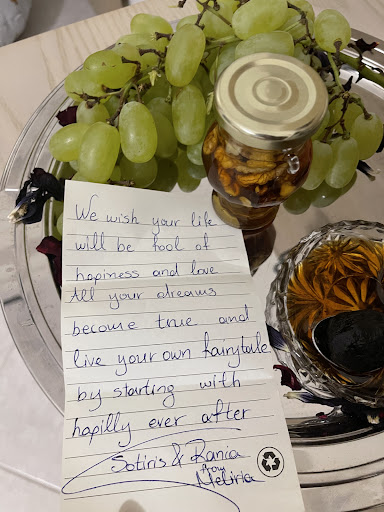 We wish your life
will be fool of
hapiness and love
All your dreams
become true and
live your own fairytale
by starting with
hapilly ever after
Sotiris & Rania
from
Meliria